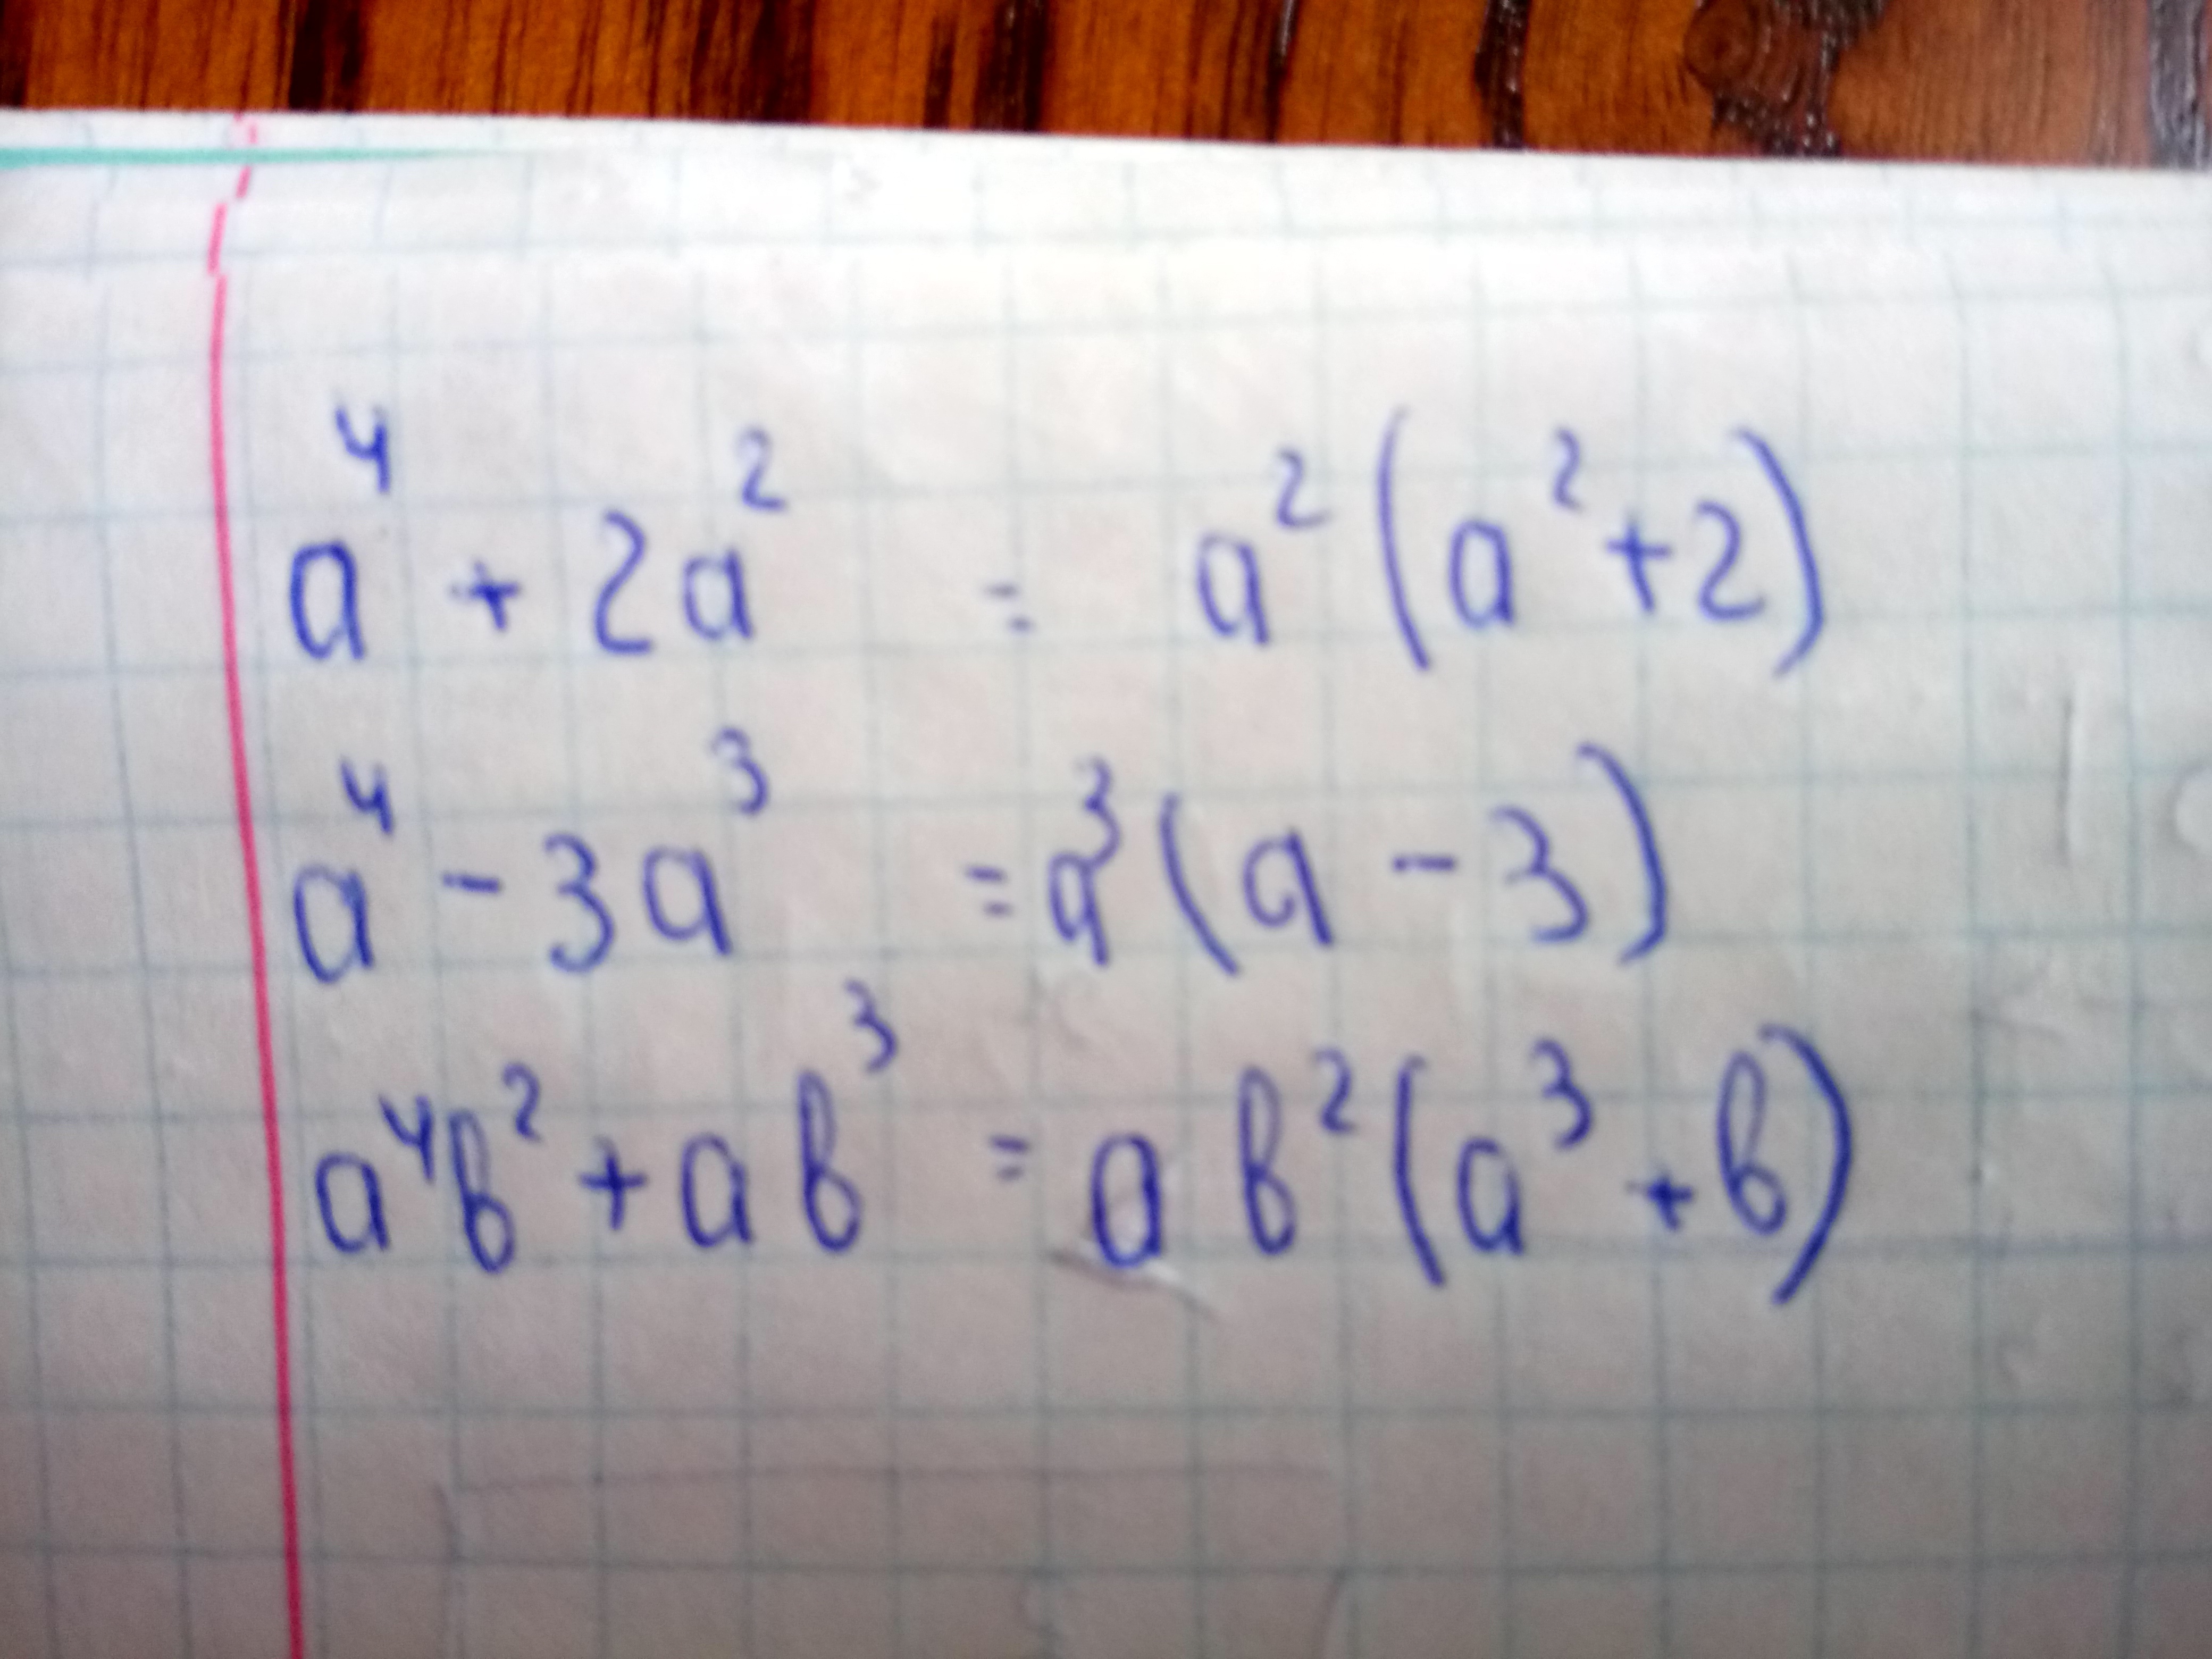 a⁴ + 2a² = a²(a² + 2)
a⁴ - 3a³ = a³(a - 3)
a⁴b² + ab³ = ab²(a³ + b)